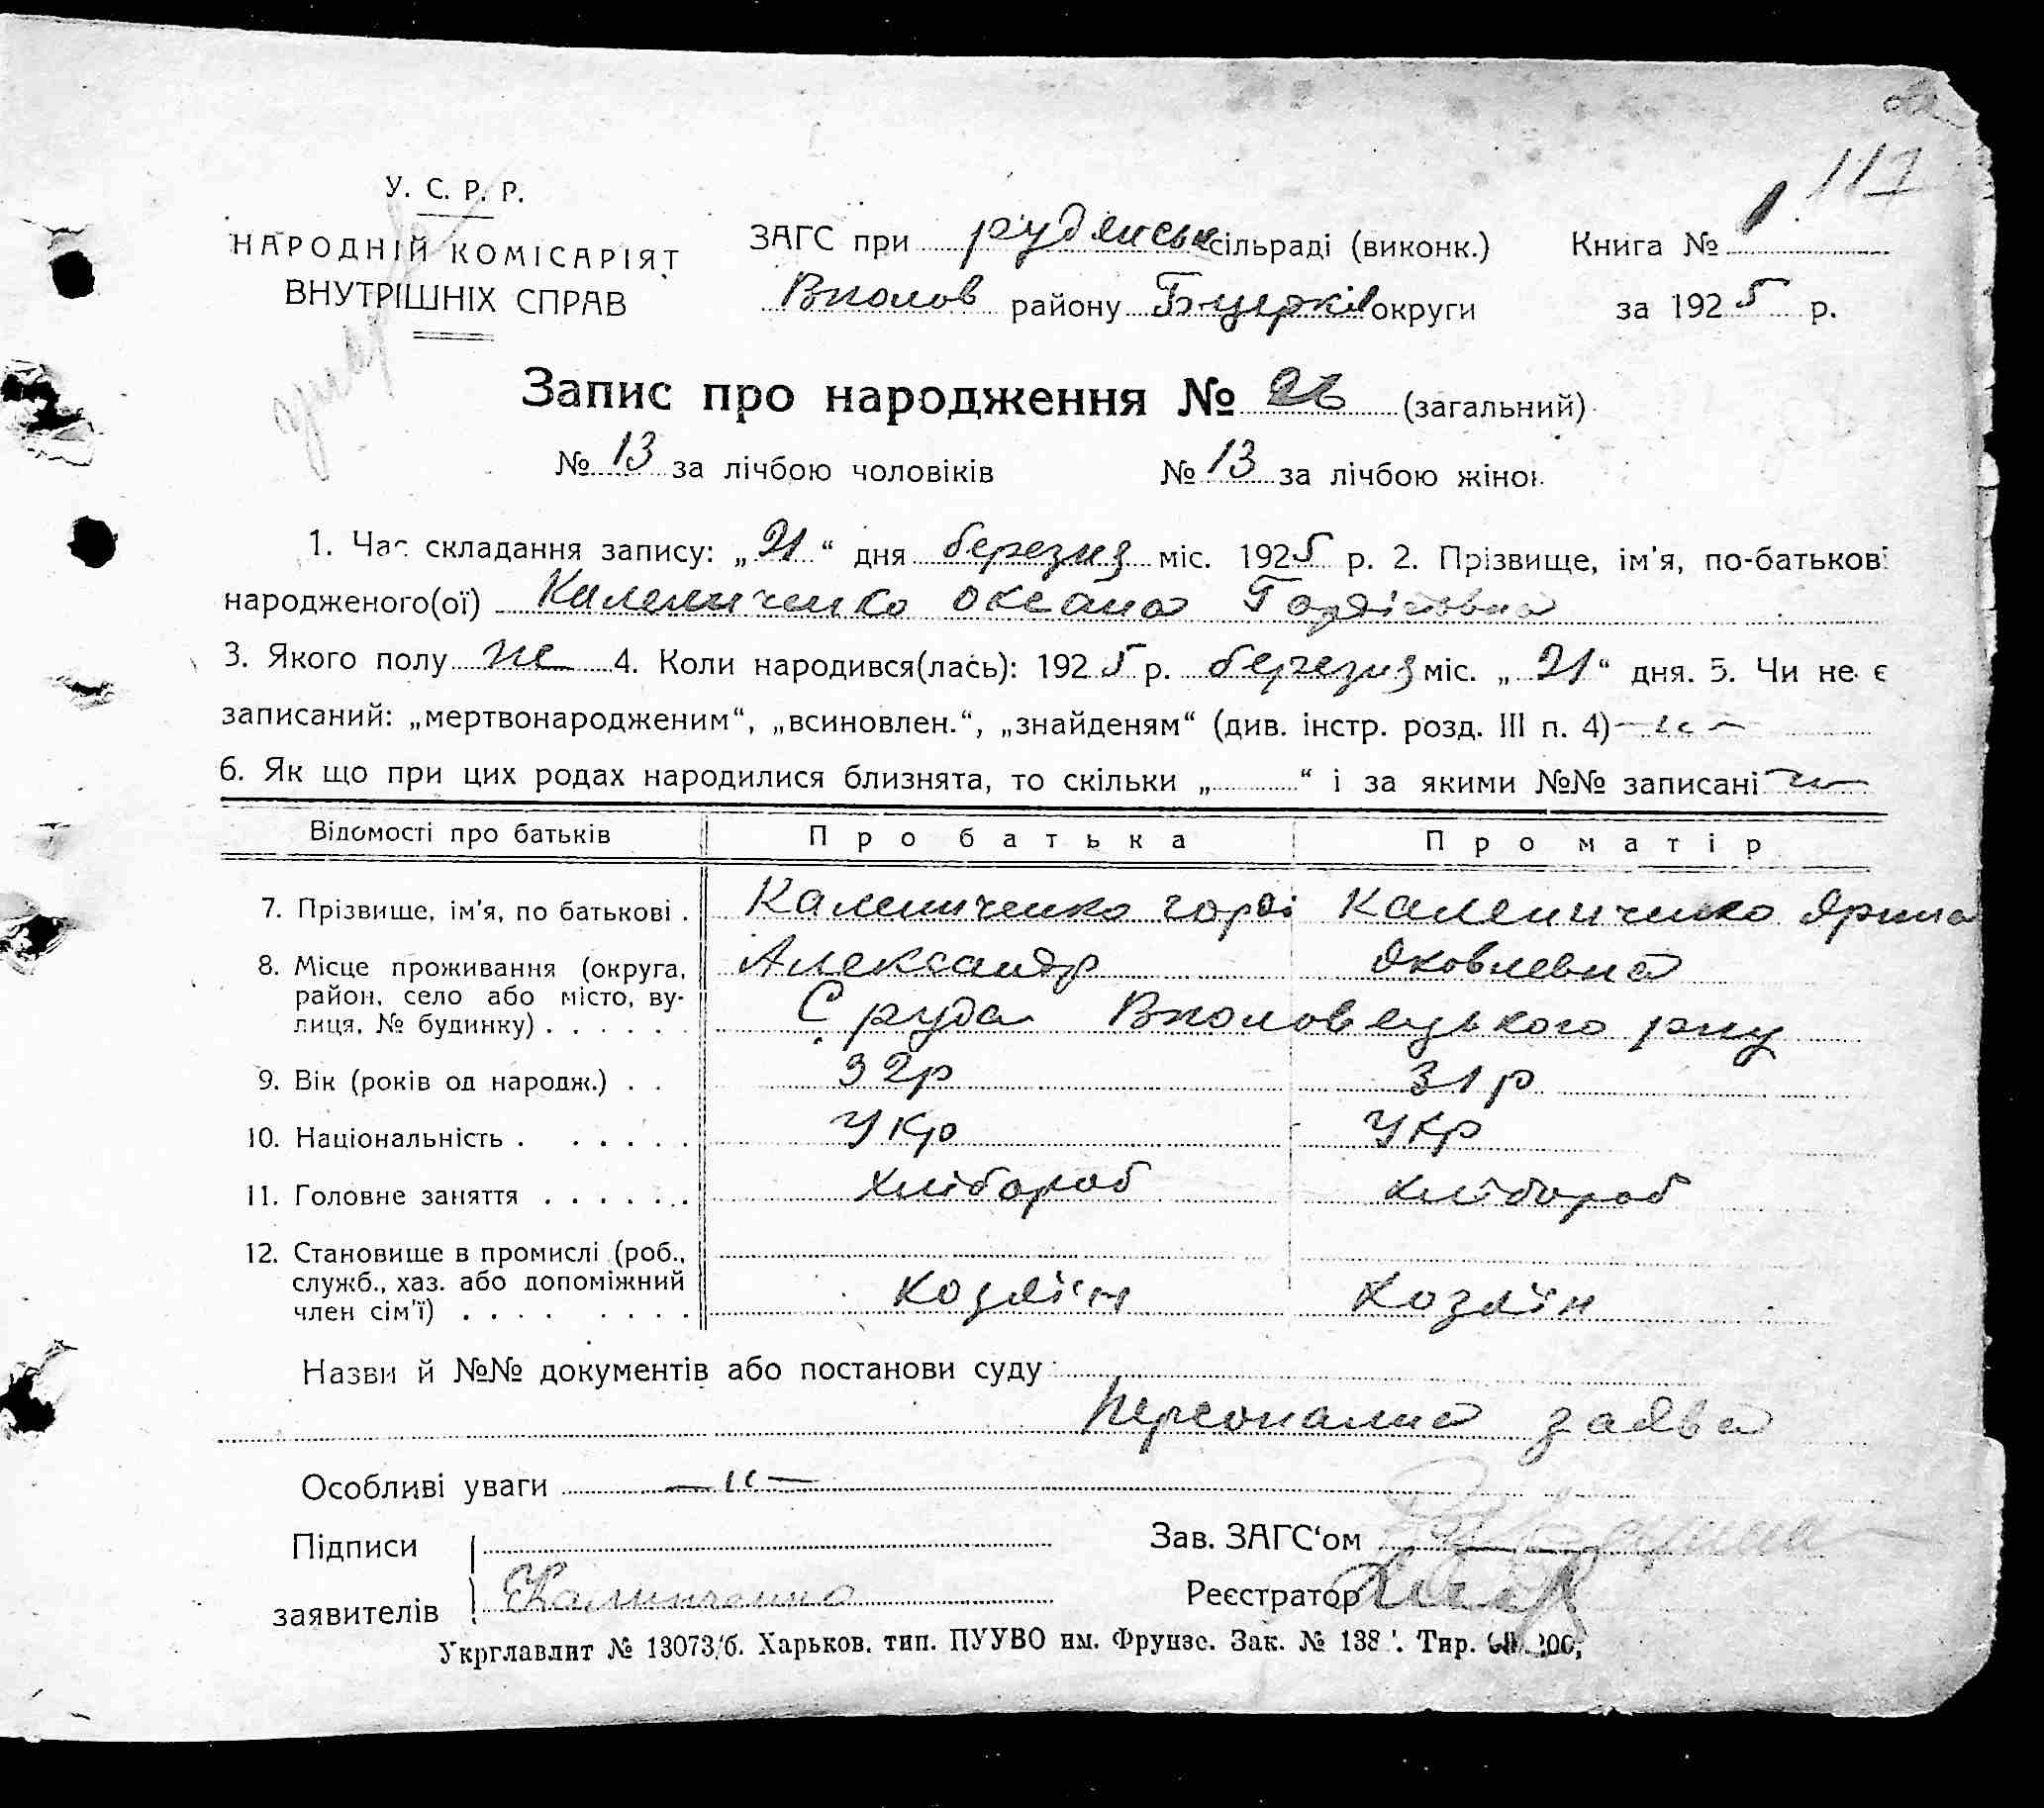 117
У. С. Р. Р.
НАРОДНІЙ КОМІСАРІЯТ
ВНУТРІШНІХ СПРАВ
ЗАГС при рудянськ сільраді (виконк.) Книга № 1
Вполов району Б-церків округи за 1925 р.
Запис про народження № 26 (загальний)
№ 13 за лічбою чоловіків № 13 за лічбою жінок
1. Час складання запису: „21“ дня березня міс. 1925 р. 2. Прізвище, ім'я, по-батькові
народженого(ої) Калениченко оксана Гордіївна
3. Якого полу же 4. Коли народився(лась): 1925 р. березня міс. „21“ дня. 5. Чи не є
записаний: „мертвонародженим“, „всиновлен.“, „знайденям“ (див. інстр. розд. III п. 4) —„—
6. Як що при цих родах народилися близнята, то скільки „ “ і за якими №№ записані —„—
Відомості про батьків Про батька Про матір
7. Прізвище, ім'я, по батькові . Калениченко горді Калениченко Ярина
Александр Яковлевна
8. Місце проживання (округа,
район, село або місто, ву-
лиця, № будинку) . . . . . . С руда Вполовецького рну
9. Вік (років од народж.) . . 32р 31р
10. Національність . . . . . . укр укр
11. Головне заняття . . . . . . хлібороб хлібороб
12. Становище в промислі (роб.,
служб., хаз. або допоміжний
член сім'ї) . . . . . . . . козяїн козяїн
Назви й №№ документів або постанови суду:
персонална заява
Особливі уваги —„—
Підписи
заявителів Калинченко
Зав. ЗАГС'ом
Реєстратор
Укрглавлит № 13073/б. Харьков. тип. ПУУВО им. Фрунзе. Зак. № 138 Тир.